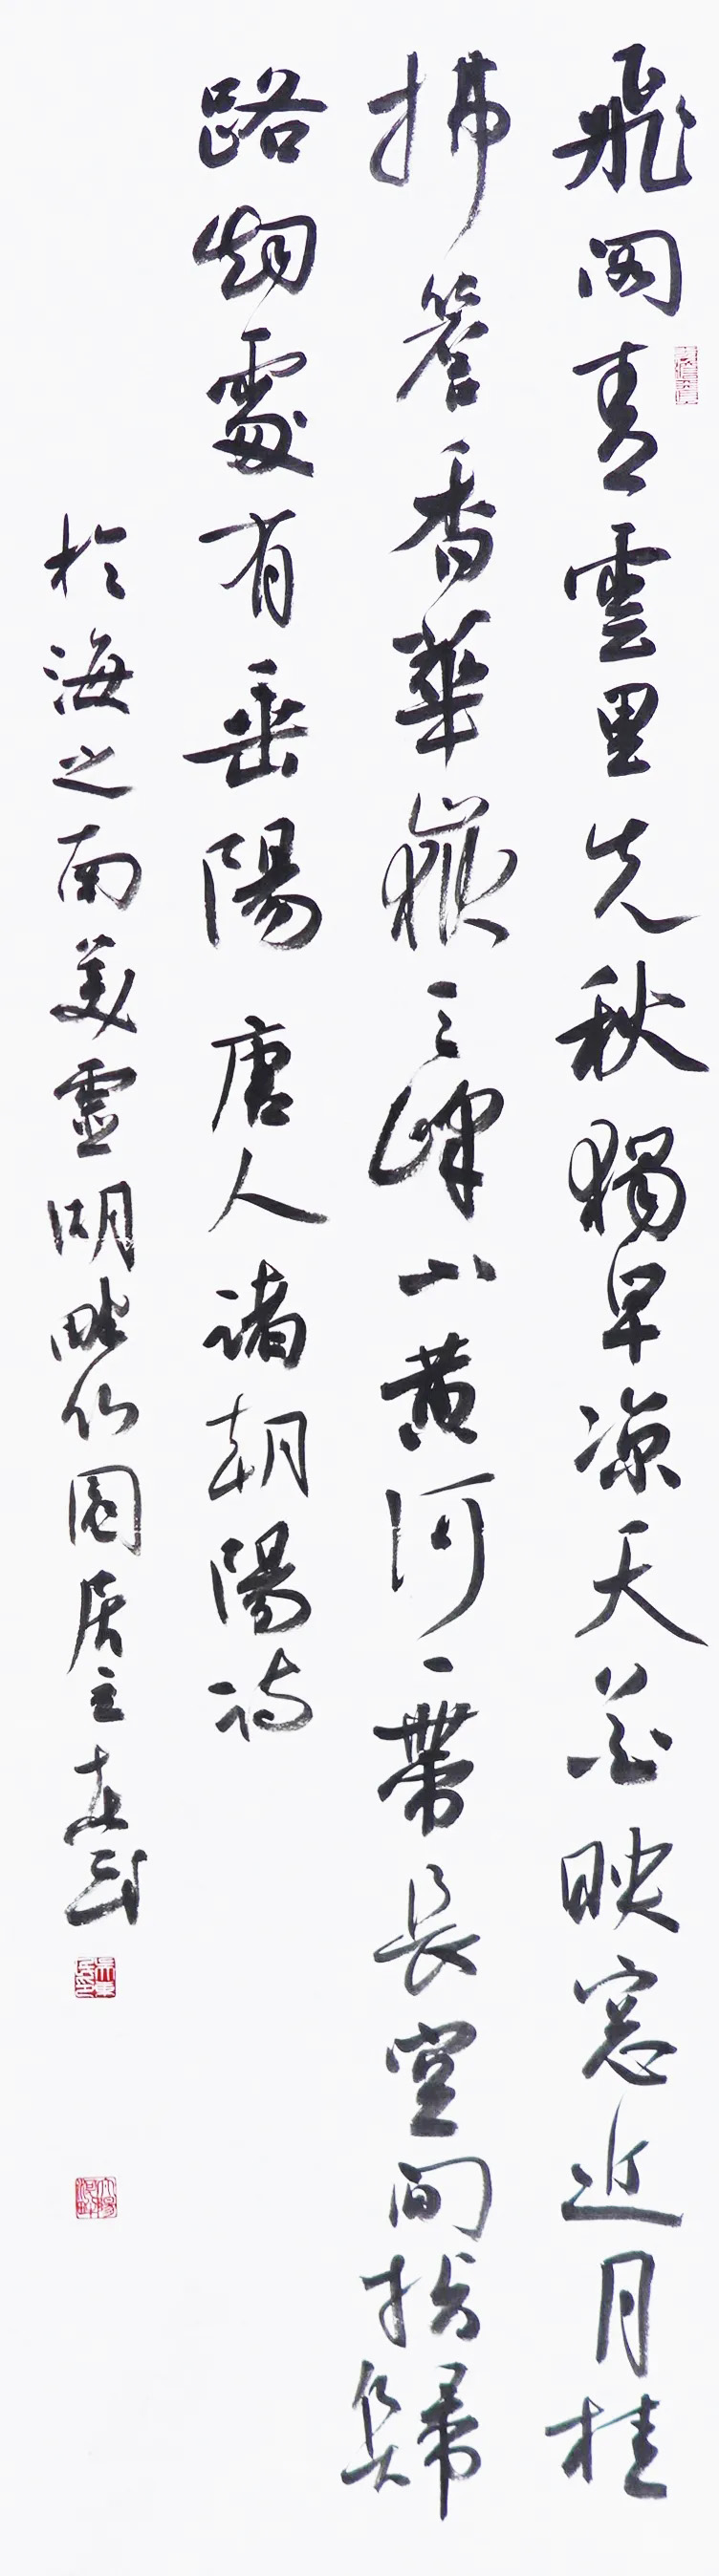 飛閣青雲里先秋獨早凉天花映窓近月桂
拂簷香華嶽三峰小黄河一帶長空間指歸
路烟處有垂陽 唐人諸朝陽詩
於海之南美靈湖畔竹園居主